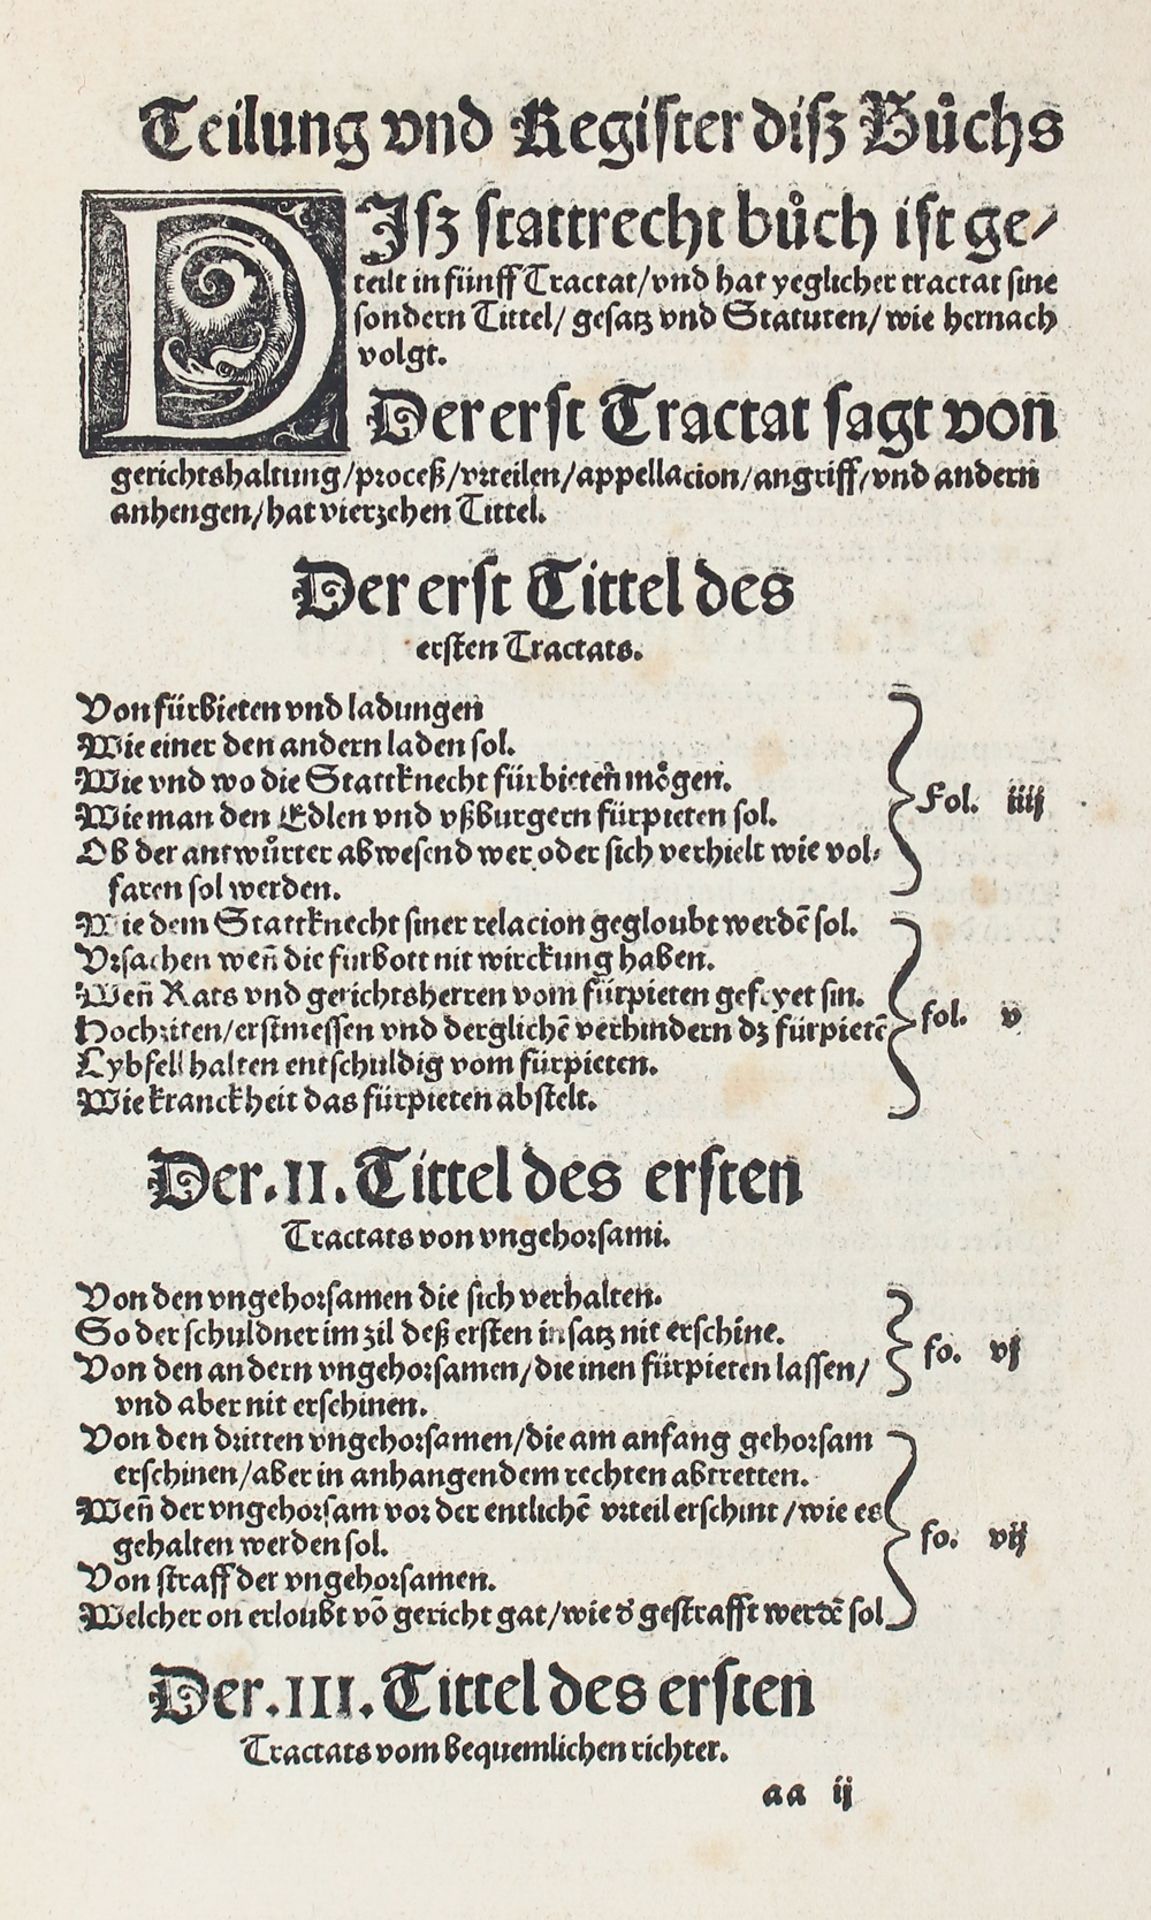 Teilung vnd Register disz Bůchs
DJsz stattrecht bůch ist ge/
teilt in fünff Tractat/vnd hat yeglicher tractat sine
sondern Tittel/ gesatz vnd Statuten/ wie hernach
volgt.
Der erst Tractat sagt von
gerichtshaltung/proceß/vrteilen/appellacion/angriff/vnd andern
anhengen/hat vierzehen Tittel.
Der erst Tittel des
ersten Tractats.
Von fürbieten vnd ladungen
Wie einer den andern laden sol.
Wie vnd wo die Stattknecht fürbietē mögen.
Wie man den Edlen vnd vßburgern fürpieten sol.
Fol. iiij
Ob der antwůrter abwesend wer oder sich verhielt wie vol⸗
faren sol werden.
Wie dem Stattknecht siner relacion gegloubt werdē sol.
Vrsachen wen̄ die fürbott nit wirckung haben.
Wen̄ Rats vnd gerichtsherren vom fürpieten gefryet sin.
Hochziten/erstmessen vnd derglichē verhindern dz fürpietē
fol. v
Lybfell halten entschuldig vom fürpieten.
Wie kranckheit das fürpieten abstelt.
Der.II.Tittel des ersten
Tractats von vngehorsami.
Von den vngehorsamen die sich verhalten.
So der schuldner im zil deß ersten insatz nit erschine.
Von den andern vngehorsamen/die inen fürpieten lassen/
fo. vj
vnd aber nit erschinen.
Von den dritten vngehorsamen/die am anfang gehorsam
erschinen/aber in anhangendem rechten abtretten.
Wen̄ der vngehorsam vor der entlichē vrteil erschint/wie es
gehalten werden sol.
fo. vij
Von straff der vngehorsamen.
Welcher on erloubt vō gericht gat/wie d' gestrafft werdē sol
Der.III.Tittel des ersten
Tractats vom bequemlichen richter.
aa ij